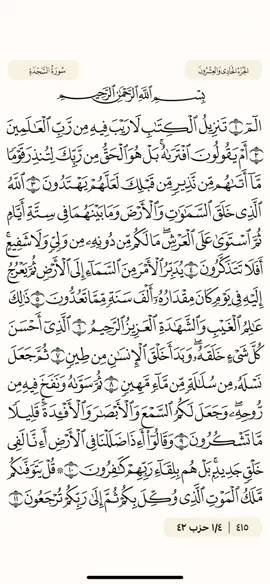 الجزء الحادي والعشرون
سورة السجدة
بِسْمِ ٱللَّهِ ٱلرَّحْمَٰنِ ٱلرَّحِيمِ
الٓمٓ ١ تَنزِيلُ ٱلْكِتَٰبِ لَا رَيْبَ فِيهِ مِن رَّبِّ ٱلْعَٰلَمِينَ
٢ أَمْ يَقُولُونَ ٱفْتَرَىٰهُ ۚ بَلْ هُوَ ٱلْحَقُّ مِن رَّبِّكَ لِتُنذِرَ قَوْمًا
مَّآ أَتَىٰهُم مِّن نَّذِيرٍ مِّن قَبْلِكَ لَعَلَّهُمْ يَهْتَدُونَ ٣ ٱللَّهُ
ٱلَّذِى خَلَقَ ٱلسَّمَٰوَٰتِ وَٱلْأَرْضَ وَمَا بَيْنَهُمَا فِى سِتَّةِ أَيَّامٍ
ثُمَّ ٱسْتَوَىٰ عَلَى ٱلْعَرْشِ ۖ مَا لَكُم مِّن دُونِهِۦ مِن وَلِىٍّ وَلَا شَفِيعٍ ۚ
أَفَلَا تَتَذَكَّرُونَ ٤ يُدَبِّرُ ٱلْأَمْرَ مِنَ ٱلسَّمَآءِ إِلَى ٱلْأَرْضِ ثُمَّ يَعْرُجُ
إِلَيْهِ فِى يَوْمٍ كَانَ مِقْدَارُهُۥٓ أَلْفَ سَنَةٍ مِّمَّا تَعُدُّونَ ٥ ذَٰلِكَ
عَٰلِمُ ٱلْغَيْبِ وَٱلشَّهَٰدَةِ ٱلْعَزِيزُ ٱلرَّحِيمُ ٦ ٱلَّذِىٓ أَحْسَنَ
كُلَّ شَىْءٍ خَلَقَهُۥ ۖ وَبَدَأَ خَلْقَ ٱلْإِنسَٰنِ مِن طِينٍ ٧ ثُمَّ جَعَلَ
نَسْلَهُۥ مِن سُلَٰلَةٍ مِّن مَّآءٍ مَّهِينٍ ٨ ثُمَّ سَوَّىٰهُ وَنَفَخَ فِيهِ مِن
رُّوحِهِۦ ۖ وَجَعَلَ لَكُمُ ٱلسَّمْعَ وَٱلْأَبْصَٰرَ وَٱلْأَفْـِٔدَةَ ۚ قَلِيلًا
مَّا تَشْكُرُونَ ٩ وَقَالُوٓا۟ أَءِذَا ضَلَلْنَا فِى ٱلْأَرْضِ أَءِنَّا لَفِى
خَلْقٍ جَدِيدٍۭ ۚ بَلْ هُم بِلِقَآءِ رَبِّهِمْ كَٰفِرُونَ ١٠ ۞ قُلْ يَتَوَفَّىٰكُم
مَّلَكُ ٱلْمَوْتِ ٱلَّذِى وُكِّلَ بِكُمْ ثُمَّ إِلَىٰ رَبِّكُمْ تُرْجَعُونَ ١١
٤١٥ | ١/٤ حزب ٤٢